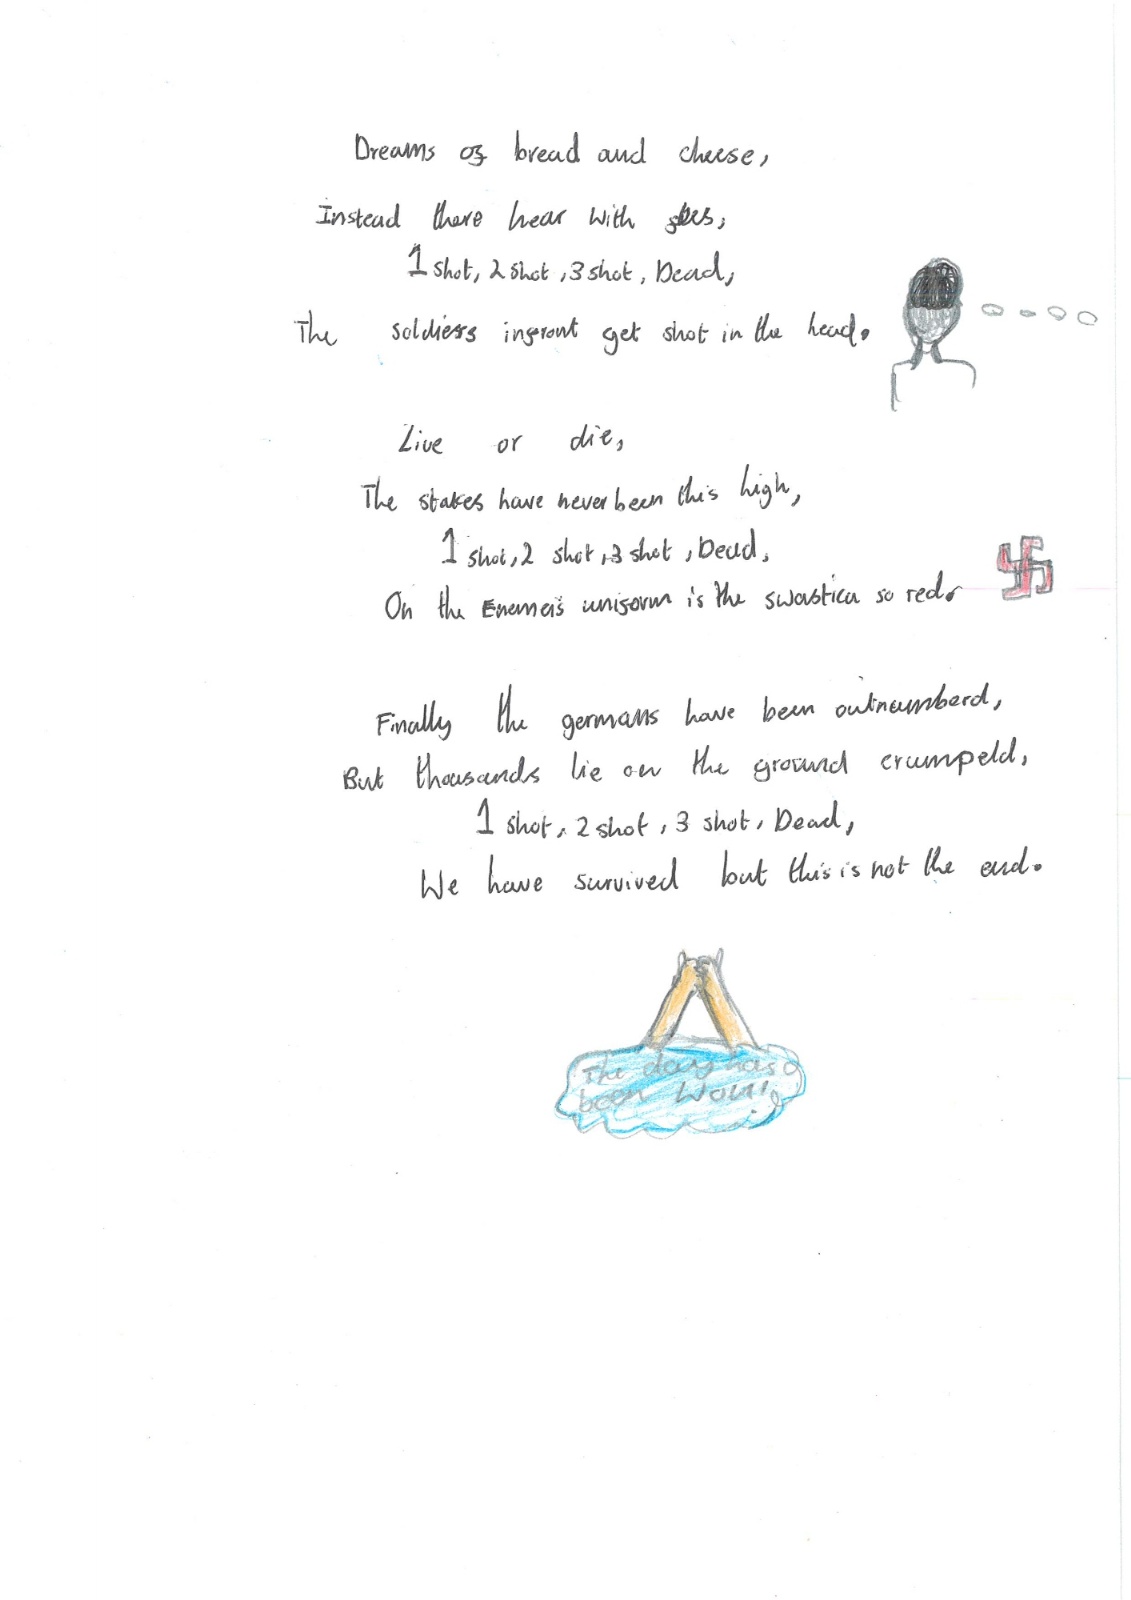 Dreams of bread and cheese,
Instead there hear with
1 shot, 2 shot, 3 shot, Dead,
The soldiers infront get shot in the head.
Live or die,
The stakes have never been this high,
1 shot, 2 shot, 3 shot, Dead,
On the Enemeis uniform is the swastica so red.
Finally the germans have been outnumberd,
But thousands lie on the ground crumpeld,
1 shot, 2 shot, 3 shot, Dead,
We have survived but this is not the end.
The day has
been Won!